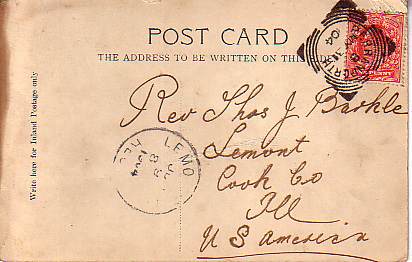 POST CARD
THE ADDRESS TO BE WRITTEN ON THIS
Write here for Inland Postage only
Rev Thos J Barkle
Lemont
Cook Co
Ill
U S America
LEMO
1904
PENNY
04